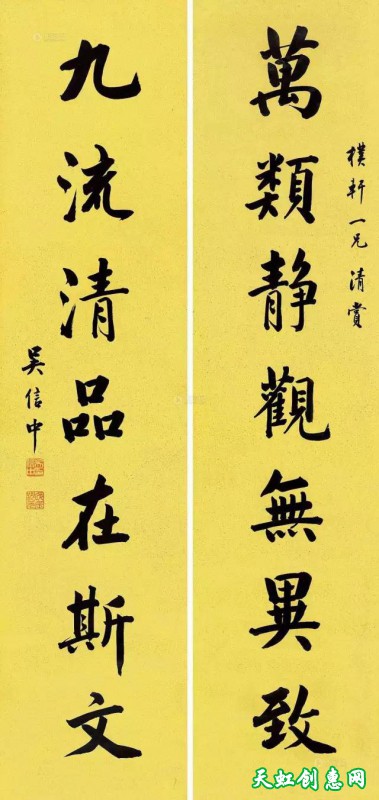 萬類静觀無異致
樸軒一兄清賞
九流清品在斯文
吳信中
天虹创惠网